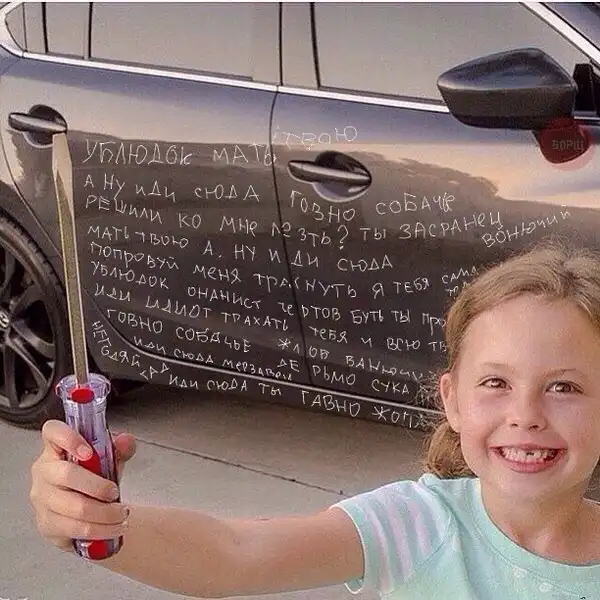 УБЛЮДОК МАТЬ ТВОЮ
А НУ ИДИ СЮДА ГОВНО СОБАЧЬЕ
РЕШИЛИ КО МНЕ ЛЕЗТЬ? ТЫ ЗАСРАНЕЦ ВОНЮЧИЙ
МАТЬ ТВОЮ А. НУ И ДИ СЮДА
ПОПРОБУЙ МЕНЯ ТРАХНУТЬ Я ТЕБЯ САМА
УБЛЮДОК ОНАНИСТ ЧЕРТОВ БУТЬ ТЫ ПРО
ИДИ ИДИОТ ТРАХАТЬ ТЕБЯ И ВСЮ ТВ
ГОВНО СОБАЧЬЕ ЖЛОБ ВАНЮЧИЙ
ИДИ СЮДА МЕРЗАВЕЦ ДЕРЬМО СУКА
НЕГОДЯЙ ГАД ИДИ СЮДА ТЫ ГАВНО ЖОПА
БОРЩ